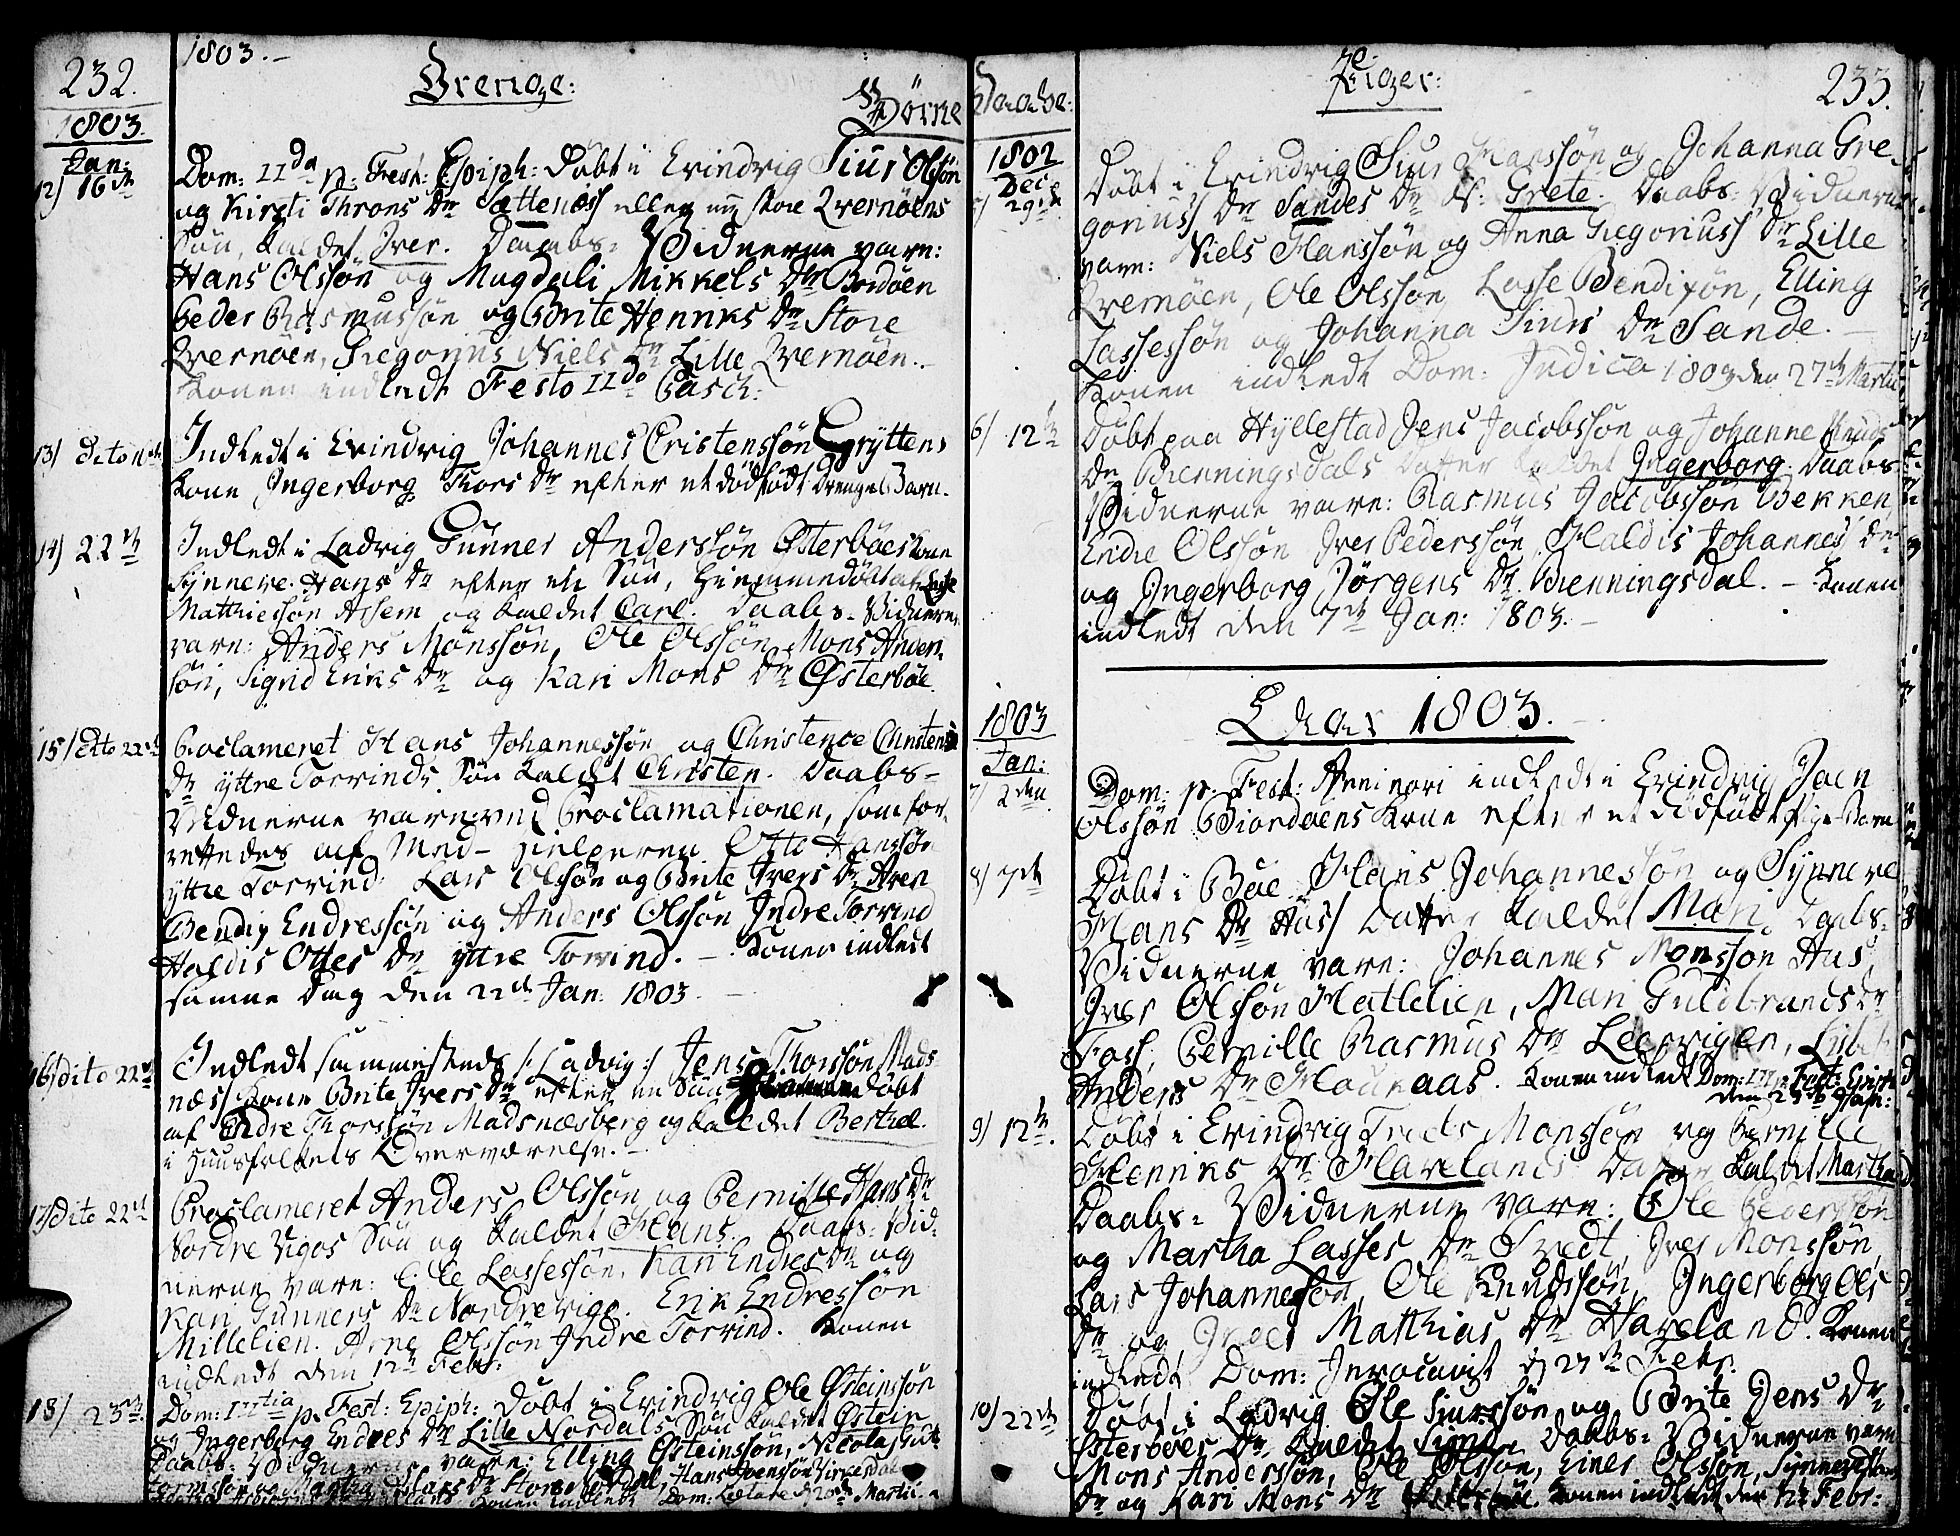 232.
1803.-
Drenge:
Børne
1803.
Jan:
12) 16de
Dom: IIda p. Fest: Epiph: Døbt i Evindvig Siur Olssøn
og Kirsti Throns Dr Sættenæss eller nu store Qvernøens
Søn, kaldet Iver. Daabs- Vidnerne vare:
Hans Olssøn og Magdali Mikkels Dr Bordøen
Peder Rasmussøn og Brite Henriks Dr Store
Qvernøen, Gregorius Niels Dr Lille Qvernøen.
Konen indledt Festo IIdo Pasch:
13) dito
Indledt i Evindvig Johannes Cristenssøn Gryttens
Kone Ingerborg Thors Dr efter et dødfødt Drenge-Barn.
14) 22de
Indledt i Ladvig Gunner Anderssøn Østerbøes Kone
Synneve Hans Dr efter en Søn, hiemmedøbt af
Matthiessøn Asem og kaldet Carl. Daabs- Vidnerne
vare: Anders Monssøn, Ole Olssøn, Mons Anders-
søn, Signd Eriks Dr og Kari Mons Dr Østerbøe.
15) dito 22de
Proclameret Hans Johannessøn og Christence Christens
Dr yttre Torvinds Søn kaldet Christen. Daabs-
Vidnerne vare ved Proclamationen, som for-
rettedes af Med- hielperen Otto Hanssøn
yttre Torvind: Lars Olssøn og Brite Ivers Dr Aren
Bendix Endressøn og Anders Olssøn Indre Torvind
Haldis Ottes Dr yttre Torvind. - Konen indledt
samme Dag den 22de Jan: 1803.
16) dito 22de
Indledt sammesteds /: Ladvig :/ Jens Thorssøn Mads-
næss Kone Brite Ivers Dr efter en Søn døbt
af Endre Thorssøn Madsnæsberg og kaldet Berthel.
i Huusfolkets Overværelse.
17) dito 22de
Proclameret Anders Olssøn og Pernille Hans Dr
Nordre Vigos Søn og kaldet Hans. Daabs- Vid-
nerne vare: Ole Lassessøn, Kari Endres Dr og
Kari Gunners Dr Nordre Vigo. Erik Endressøn
Millelien. Arne Olssøn Indre Torvind. Konen
indledt den 12te Febr:
18) 23de
Dom: IIItia p. Fest: Epiph: Døbt i Evindvig Ole Østeinssøn
og Ingerborg Endres Dr Lille Nordals Søn kaldet Østein
Daabs- Vidnerne vare: Elling Østeinssøn, Nicolaj
og Martha Dr Store Nordal, Hans Joenssøn
Konen indledt Dom: Lætare d 20de Martii
Daabe:
Piger:
233.
1802
Dec
5) 29de
Døbt i Evindvig Siur Hanssøn og Johanna Gre-
goriuss Dr Sandes Dr kl: Grete. Daabs- Vidnerne
vare: Niels Hanssøn og Anna Gregoriuss Dr Lille
Qvernøen, Ole Olssøn, Lasse Bendixøn, Elling
Lassessøn og Johanna Siurs Dr Sande.
Konen indledt Dom: Judica 1803 den 27de Martii
6) 12te
Døbt paa Hyllestad Jens Jacobssøn og Johanne Knuds
Dr Brenningsdals Datter kaldet Ingerborg. Daabs-
Vidnerne vare: Rasmus Jacobssøn Bekken
Endre Olssøn, Iver Pederssøn, Haldis Johannes Dr
og Ingerborg Jørgens Dr Brenningsdal. - Konen
indledt den 7de Jan: 1803.
Ao 1803.
1803
Jan:
7) 2den
Dom: p. Fest: Anni novi indledt i Evindvig Joen
Olssøn Biordøens Kone efter et dødfødt Pige-Barn
8) 7de
Døbt i Bøe Hans Johannessøn og Synneve
Hans Dr Huss Datter kaldet Mari. Daabs-
Vidnerne vare: Johannes Monssøn Hus
Iver Olssøn Hatlelien, Mari Guldbrands Dr
Foss, Pernille Rasmus Dr Leervigen, Lisbet
Anders Dr Houkaas. Konen indledt Dom: III p. Fest: Epiph:
den 23de Jan:
9) 12te.
Døbt i Evindvig Trods Monssøn og Pernille
Henriks Dr Havelands Datter kaldet Martha
Daabs- Vidnerne vare: Ole Pederssøn
og Martha Lasses Dr Tvedt, Iver Monssøn,
Lars Johannessøn, Ole Knudssøn, Ingerborg Oles
Dr og Matthias Dr Haveland. Konen
indledt Dom: Invocavit d 27de Febr:
10) 22de
Døbt i Ladvig Ole Siurssøn og Brite Jens Dr
Østerbøes Dr kaldet Signd. Daabs- Vidnerne vare
Mons Anderssøn, Ole Olssøn, Einer Olssøn, Synneve
Dr og Kari Mons Dr Østerbøe. Konen indledt den 12te Febr: